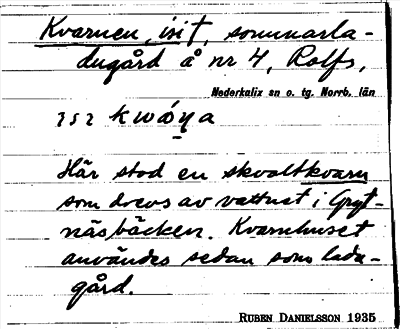 Kvarnen, isit, sommarla-
dugård å nr 4, Rolfs,
Nederkalix sn o. tg. Norrb. län
Här stod en skvaltkvarn
som drevs av vattnet i Gryt-
näsbäcken. Kvarnhuset
användes sedan som ladu-
gård.
RUBEN DANIELSSON 1935